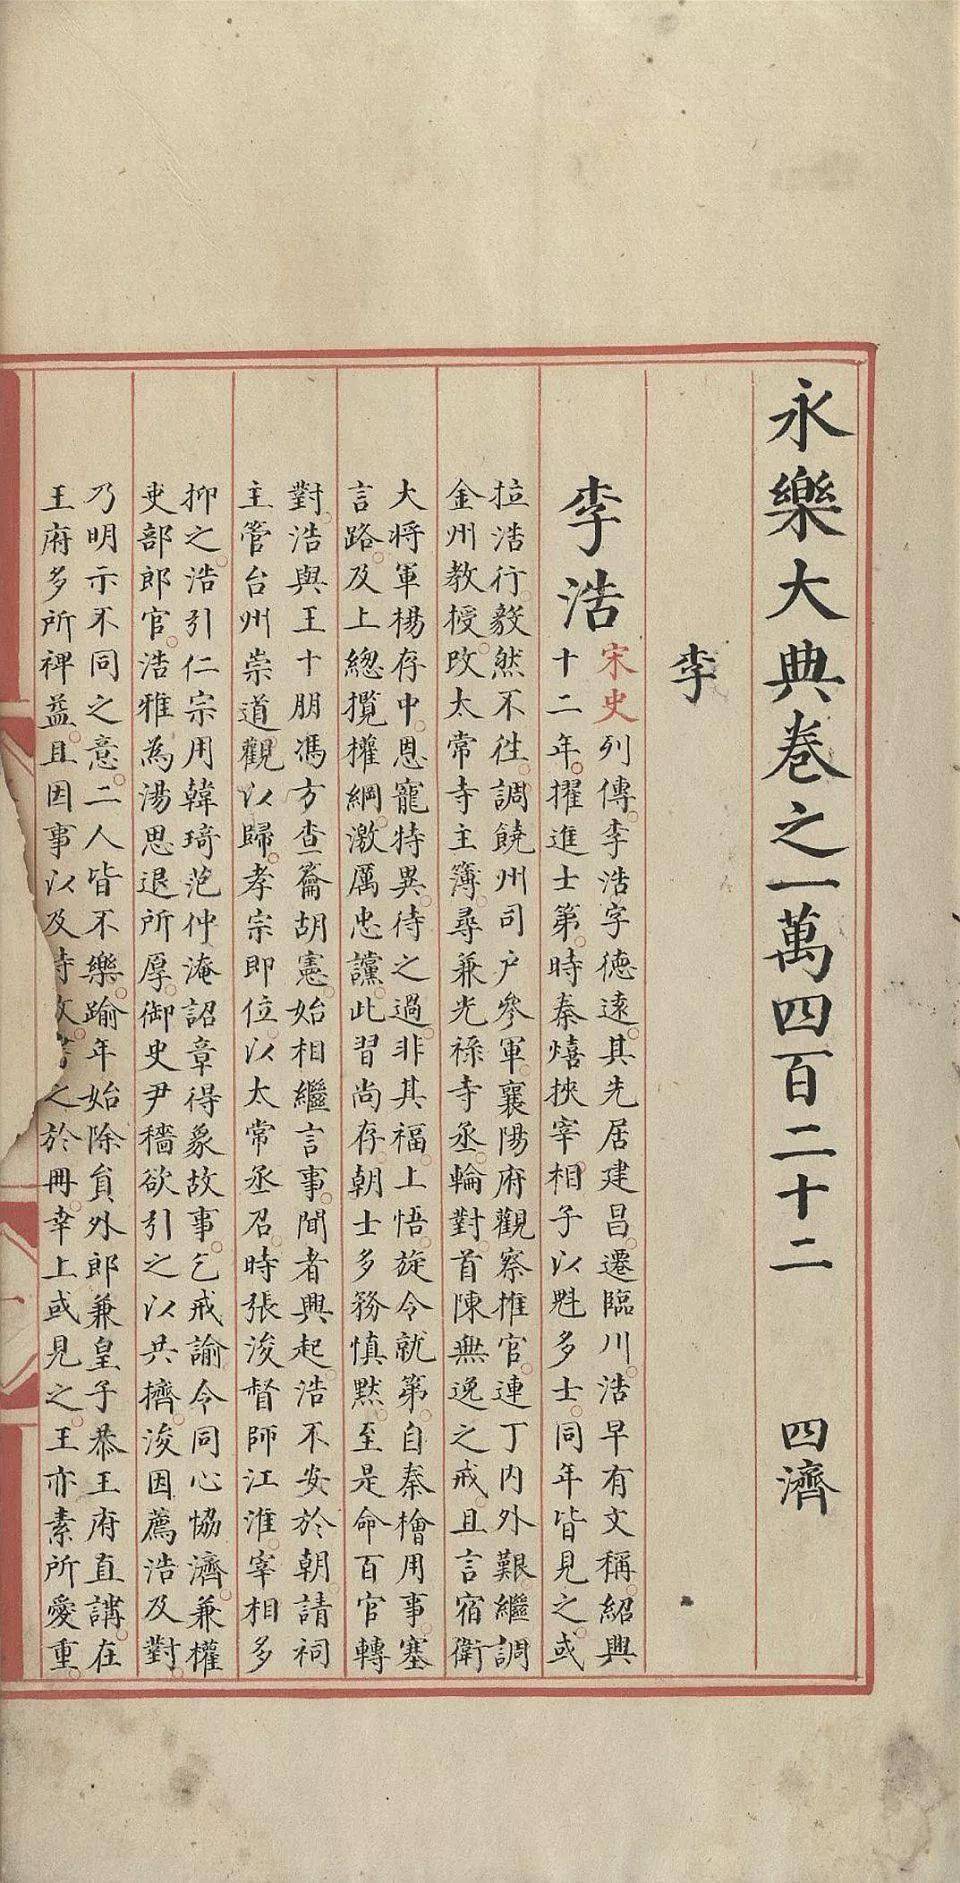 永樂大典卷之一萬四百二十二 四濟
李
李浩
宋史列傳李浩字德遠其先居建昌遷臨川浩早有文稱紹興
十二年擢進士第時秦熺挾宰相子以魁多士同年皆見之或
拉浩行毅然不往調饒州司戶參軍襄陽府觀察推官連丁内外艱繼調
金州教授改太常寺主簿尋兼光祿寺丞輪對首陳無逸之戒且言宿衛
大將軍楊存中恩寵特異待之過非其福上悟旋令就第自秦檜用事塞
言路及上總攬權綱激厲忠讜此習尚存朝士多務慎默至是命百官轉
對浩與王十朋馮方查籥胡憲始相繼言事聞者興起浩不安於朝請祠
主管台州崇道觀以歸孝宗即位以太常丞召時張浚督師江淮宰相多
抑之浩引仁宗用韓琦范仲淹詔章得象故事乞戒諭令同心協濟兼權
吏部郎官浩雅為湯思退所厚御史尹穡欲引之以共擠浚因薦浩及對
乃明示不同之意二人皆不樂踰年始除負外郎兼皇子恭王府直講在
王府多所裨益且因事以及時政書之於冊幸上或見之王亦素所愛重